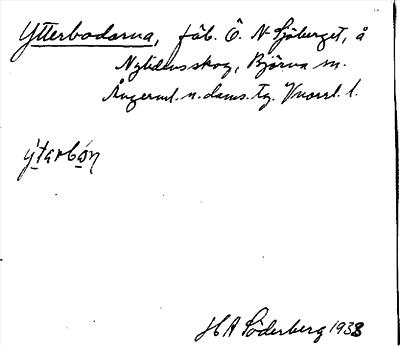 Ytterbodarna, fäb. Ö. N Sjöberget, å
Nylidens skog, Björna sn.
Ångerml. n. doms. tg. Vnorrl. l.
ýtarbòn
HA Söderberg 1938